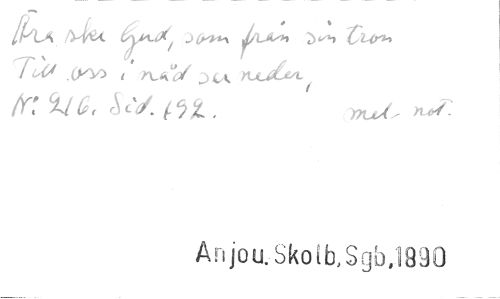 Ära ske Gud, som från sin tron
Till oss i nåd ser neder,
N: 216. Sid. 192. mel. not.
Anjou. Skolb, Sgb, 1890